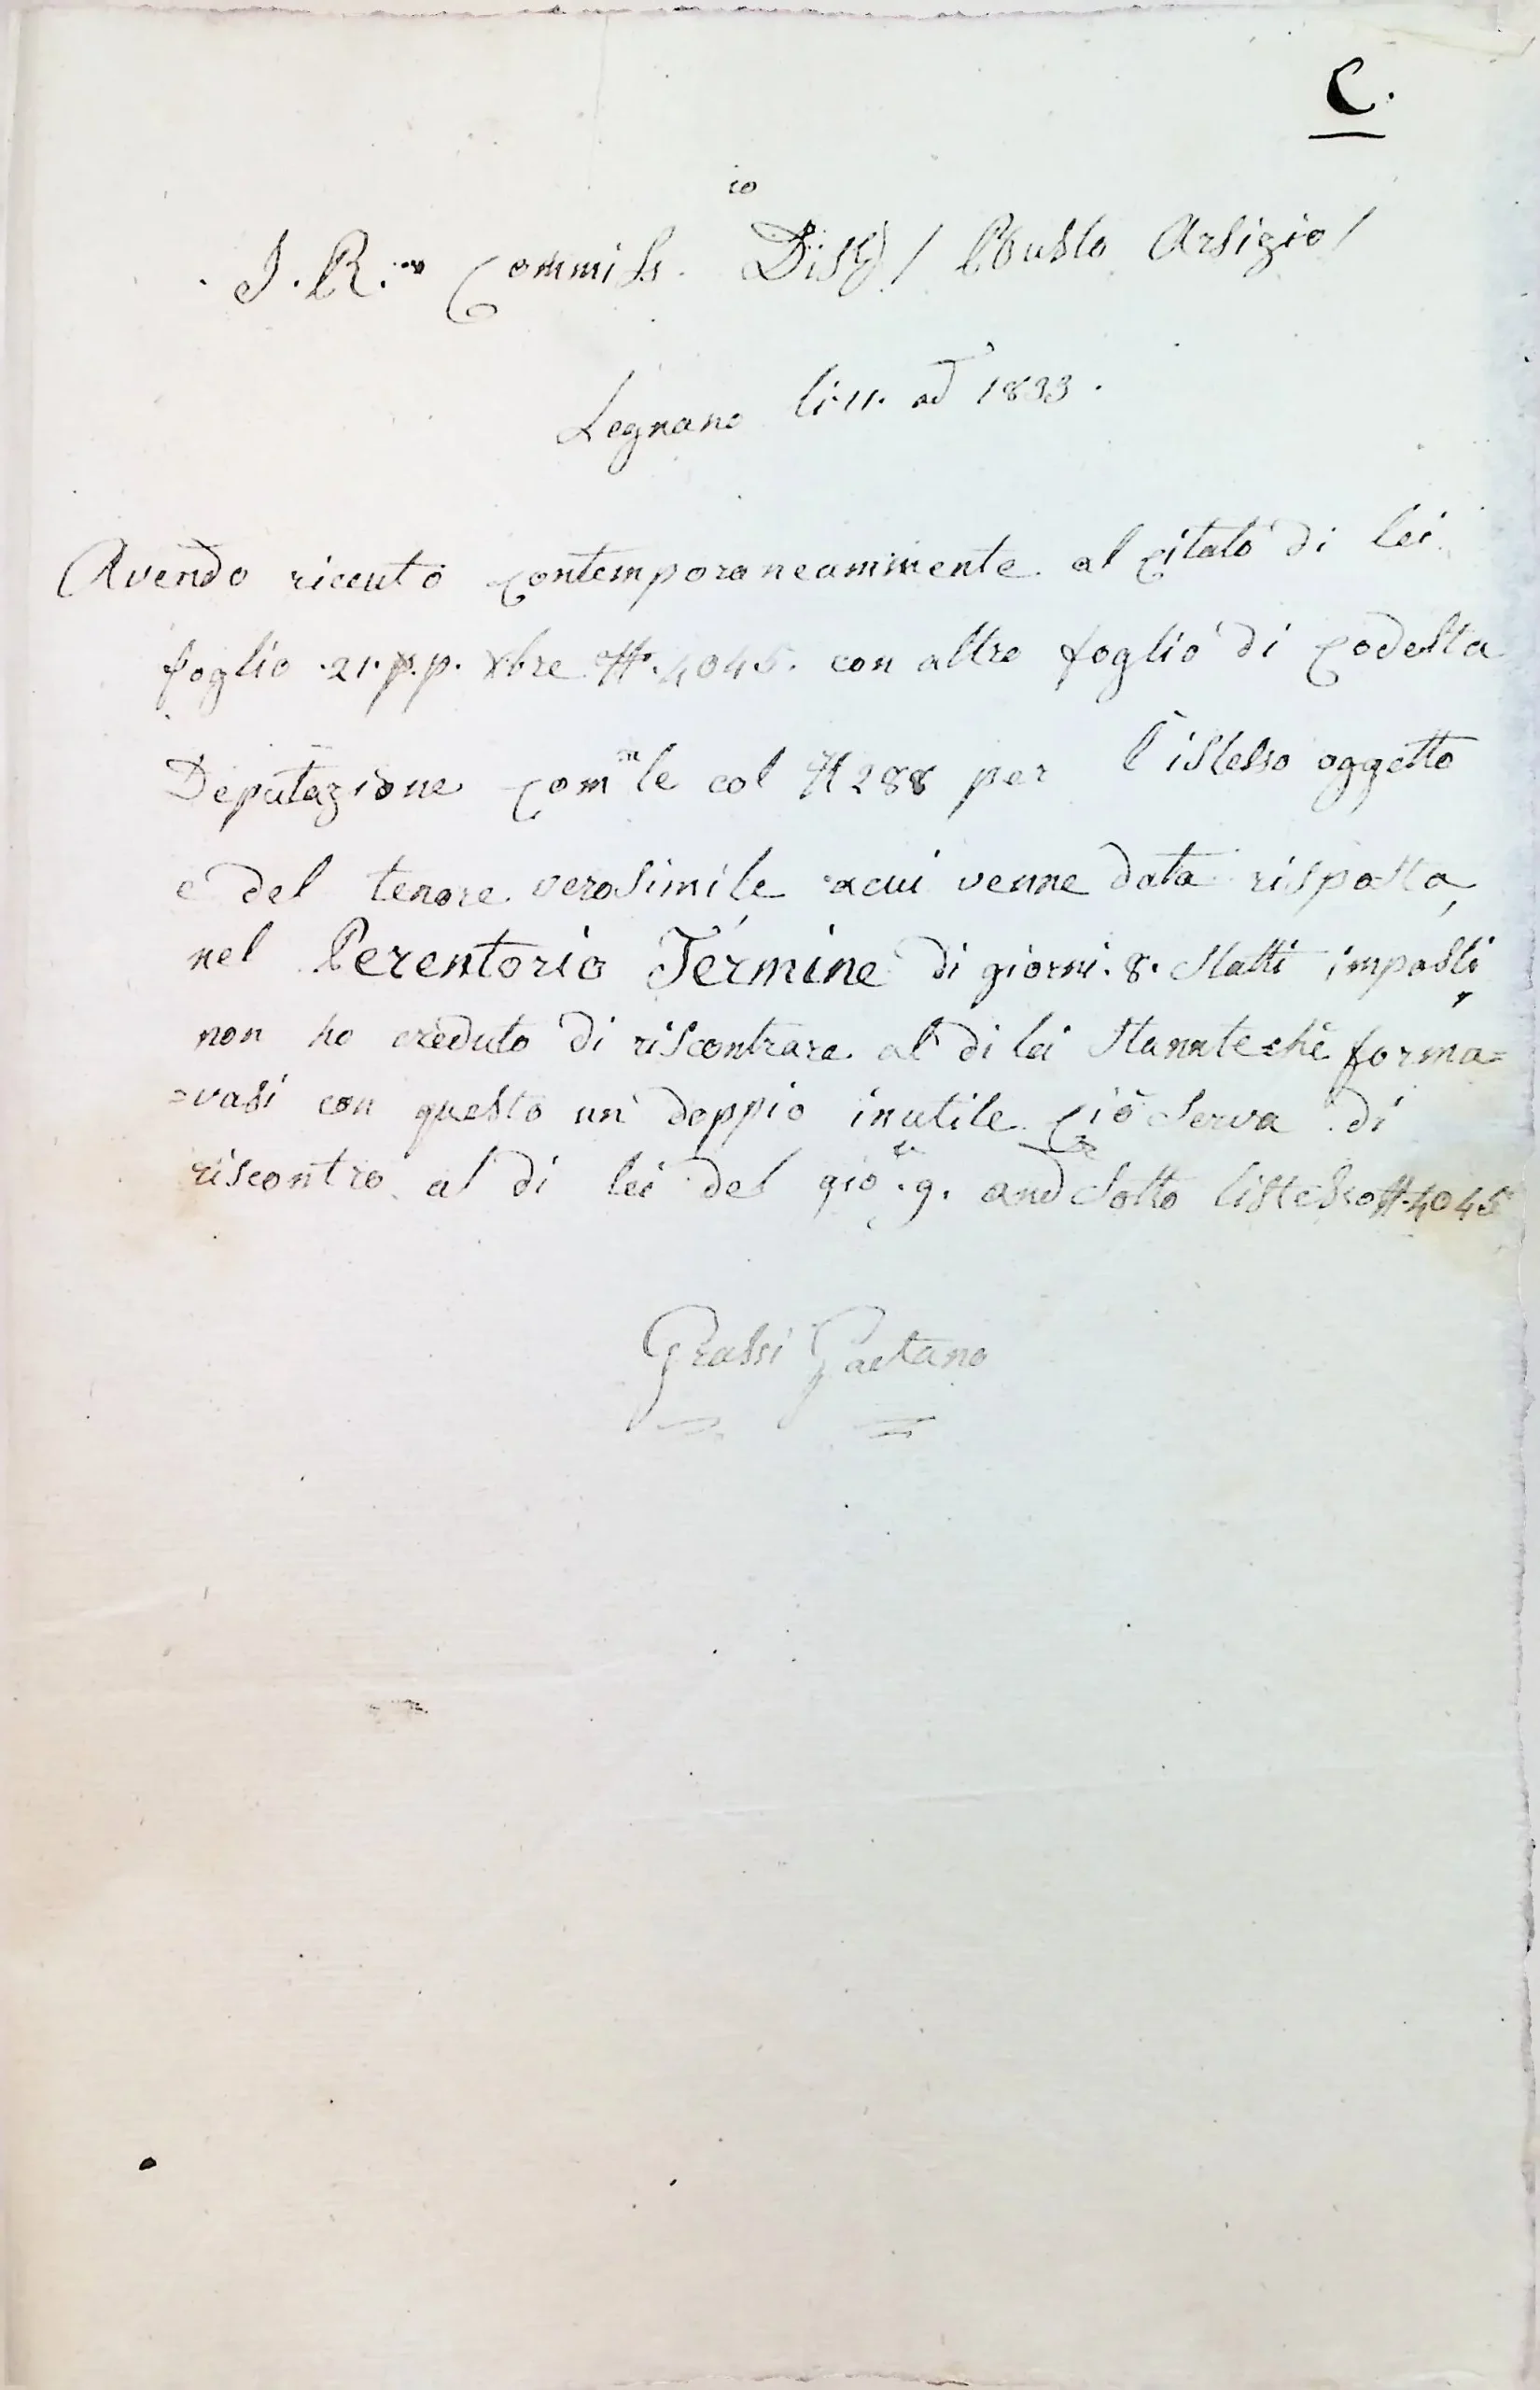 C.
I. R. Commiss.io Dist / Busto Arsizio /
Legnano li 11. ad 1833.
Avendo riceuto contemporaneammente al citato di lei
foglio 21. p.p. Xbre N.° 4045. con altro foglio di codesta
Deputazione Com.le col N 288 per l'istesso oggetto
e del tenore verosimile acui venne data risposta,
nel Perentorio Termine di giorni. 8. statti imposti,
non ho creduto di riscontrare al di lei stannteche forma=
=vasi con questo un doppio inutile ciò serva di
riscontro al di lei del gio. 9. and sotto listesso N. 4045
Grassi Gaetano